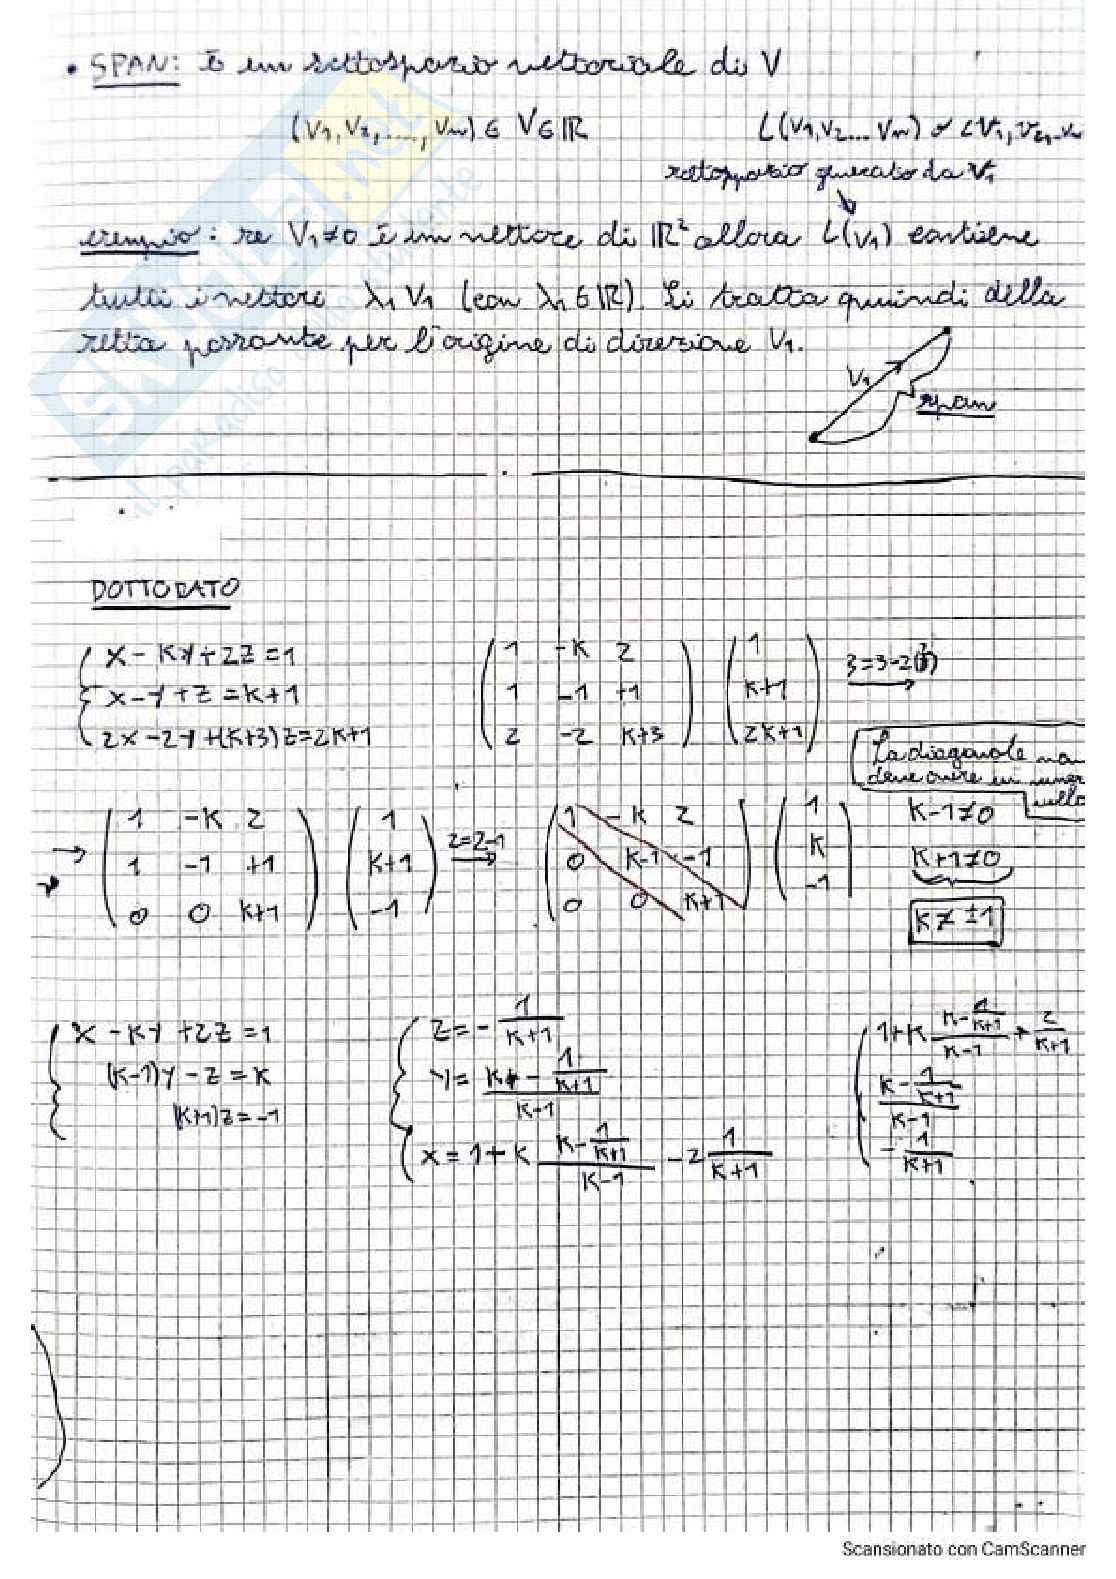 • SPAN: è un sottospazio vettoriale di V
(V1, V2, ..., Vn) ∈ V ∈ ℝ L(V1, V2 ... Vn) o
sottospazio generato da V1
esempio: se V1≠0 è un vettore di ℝ² allora L(V1) contiene
tutti i vettori λ1 V1 (con λ1 ∈ ℝ). Si tratta quindi della
retta passante per l'origine di direzione V1.
V1
span
SKUOLA.net
il paradiso dello studente
DOTTORATO
{ x - Ky + 2z = 1
x - y + z = K+1
2x - 2y + (K+3)z = 2K+1
( 1 -K 2
1 -1 +1
2 -2 K+3 )
( 1
K+1
2K+1 )
La diagonale non
deve avere un numer
nullo
→ ( 1 -K 2
1 -1 +1
0 0 K+1 )
( 1
K+1
-1 )
2=2-1 →
( 1 -K 2
0 K-1 -1
0 0 K+1 )
( 1
K
-1 )
K-1≠0
K+1≠0
K≠±1
{ x - Ky + 2z = 1
(K-1)y - z = K
(K+1)z = -1
{ z = - 1/(K+1)
x = 1 + K (K - 1/(K+1))/(K-1) - 2 1/(K+1)
( 1 + K (K - 1/(K+1))/(K-1) + 2/(K+1)
(K - 1/(K+1))/(K-1)
- 1/(K+1)
Scansionato con CamScanner